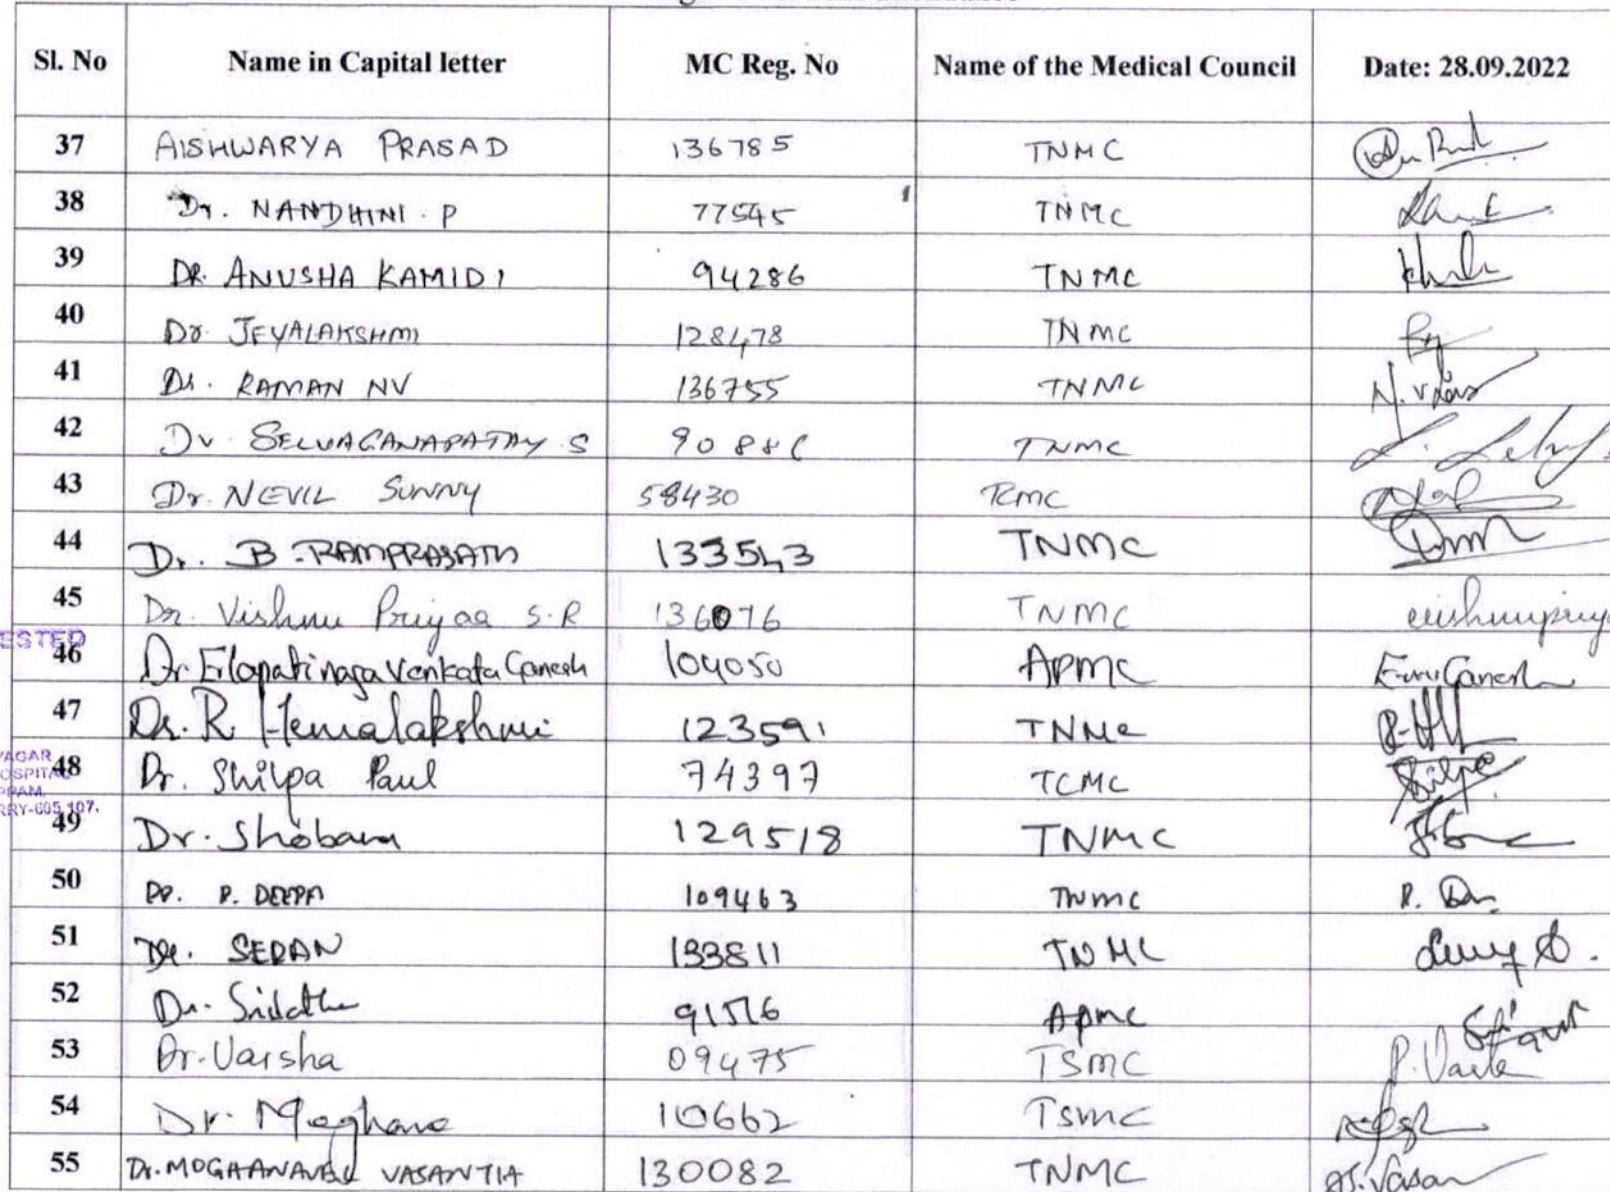 Sl. No Name in Capital letter MC Reg. No Name of the Medical Council Date: 28.09.2022
37 AISHWARYA PRASAD 136785 TNMC
38 Dr. NANDHINI . P 77545 TNMC
39 DR. ANUSHA KAMIDI 94286 TNMC
40 Dr JEYALAKSHMI 128478 TNMC
41 Dr. RAMAN NV 136755 TNMC N.V
42 Dr SELVAGANAPATHY S 90886 TNMC
43 Dr. NEVIL SUNNY 58430
44 Dr. B. RAMPRASATH 133543 TNMC
45 Dr. Vishnu Priyaa S.R 136076 TNMC vishnupriya
ESTED
46 Dr Erlapatinaga Venkata Ganesh 104050 APMC Ganesh
47 Dr. R Hemalakshmi 123591 TNMC
VAGAR
OSPITAL
48 Dr. Shilpa Paul 74397 TCMC Shilpa
PPAM,
RRY-605 107.
49 Dr. Shobana 129518 TNMC
50 DR. P. DEEPA 109463 TNMC
51 DR. SEDAN 133811 TNMC
52 Dr. 91516 APMC
53 Dr. Varsha 09475 TSMC P. Varsha
54 Dr. Meghana 10662 TSMC
55 Dr. VASANTHA 130082 TNMC Vasan